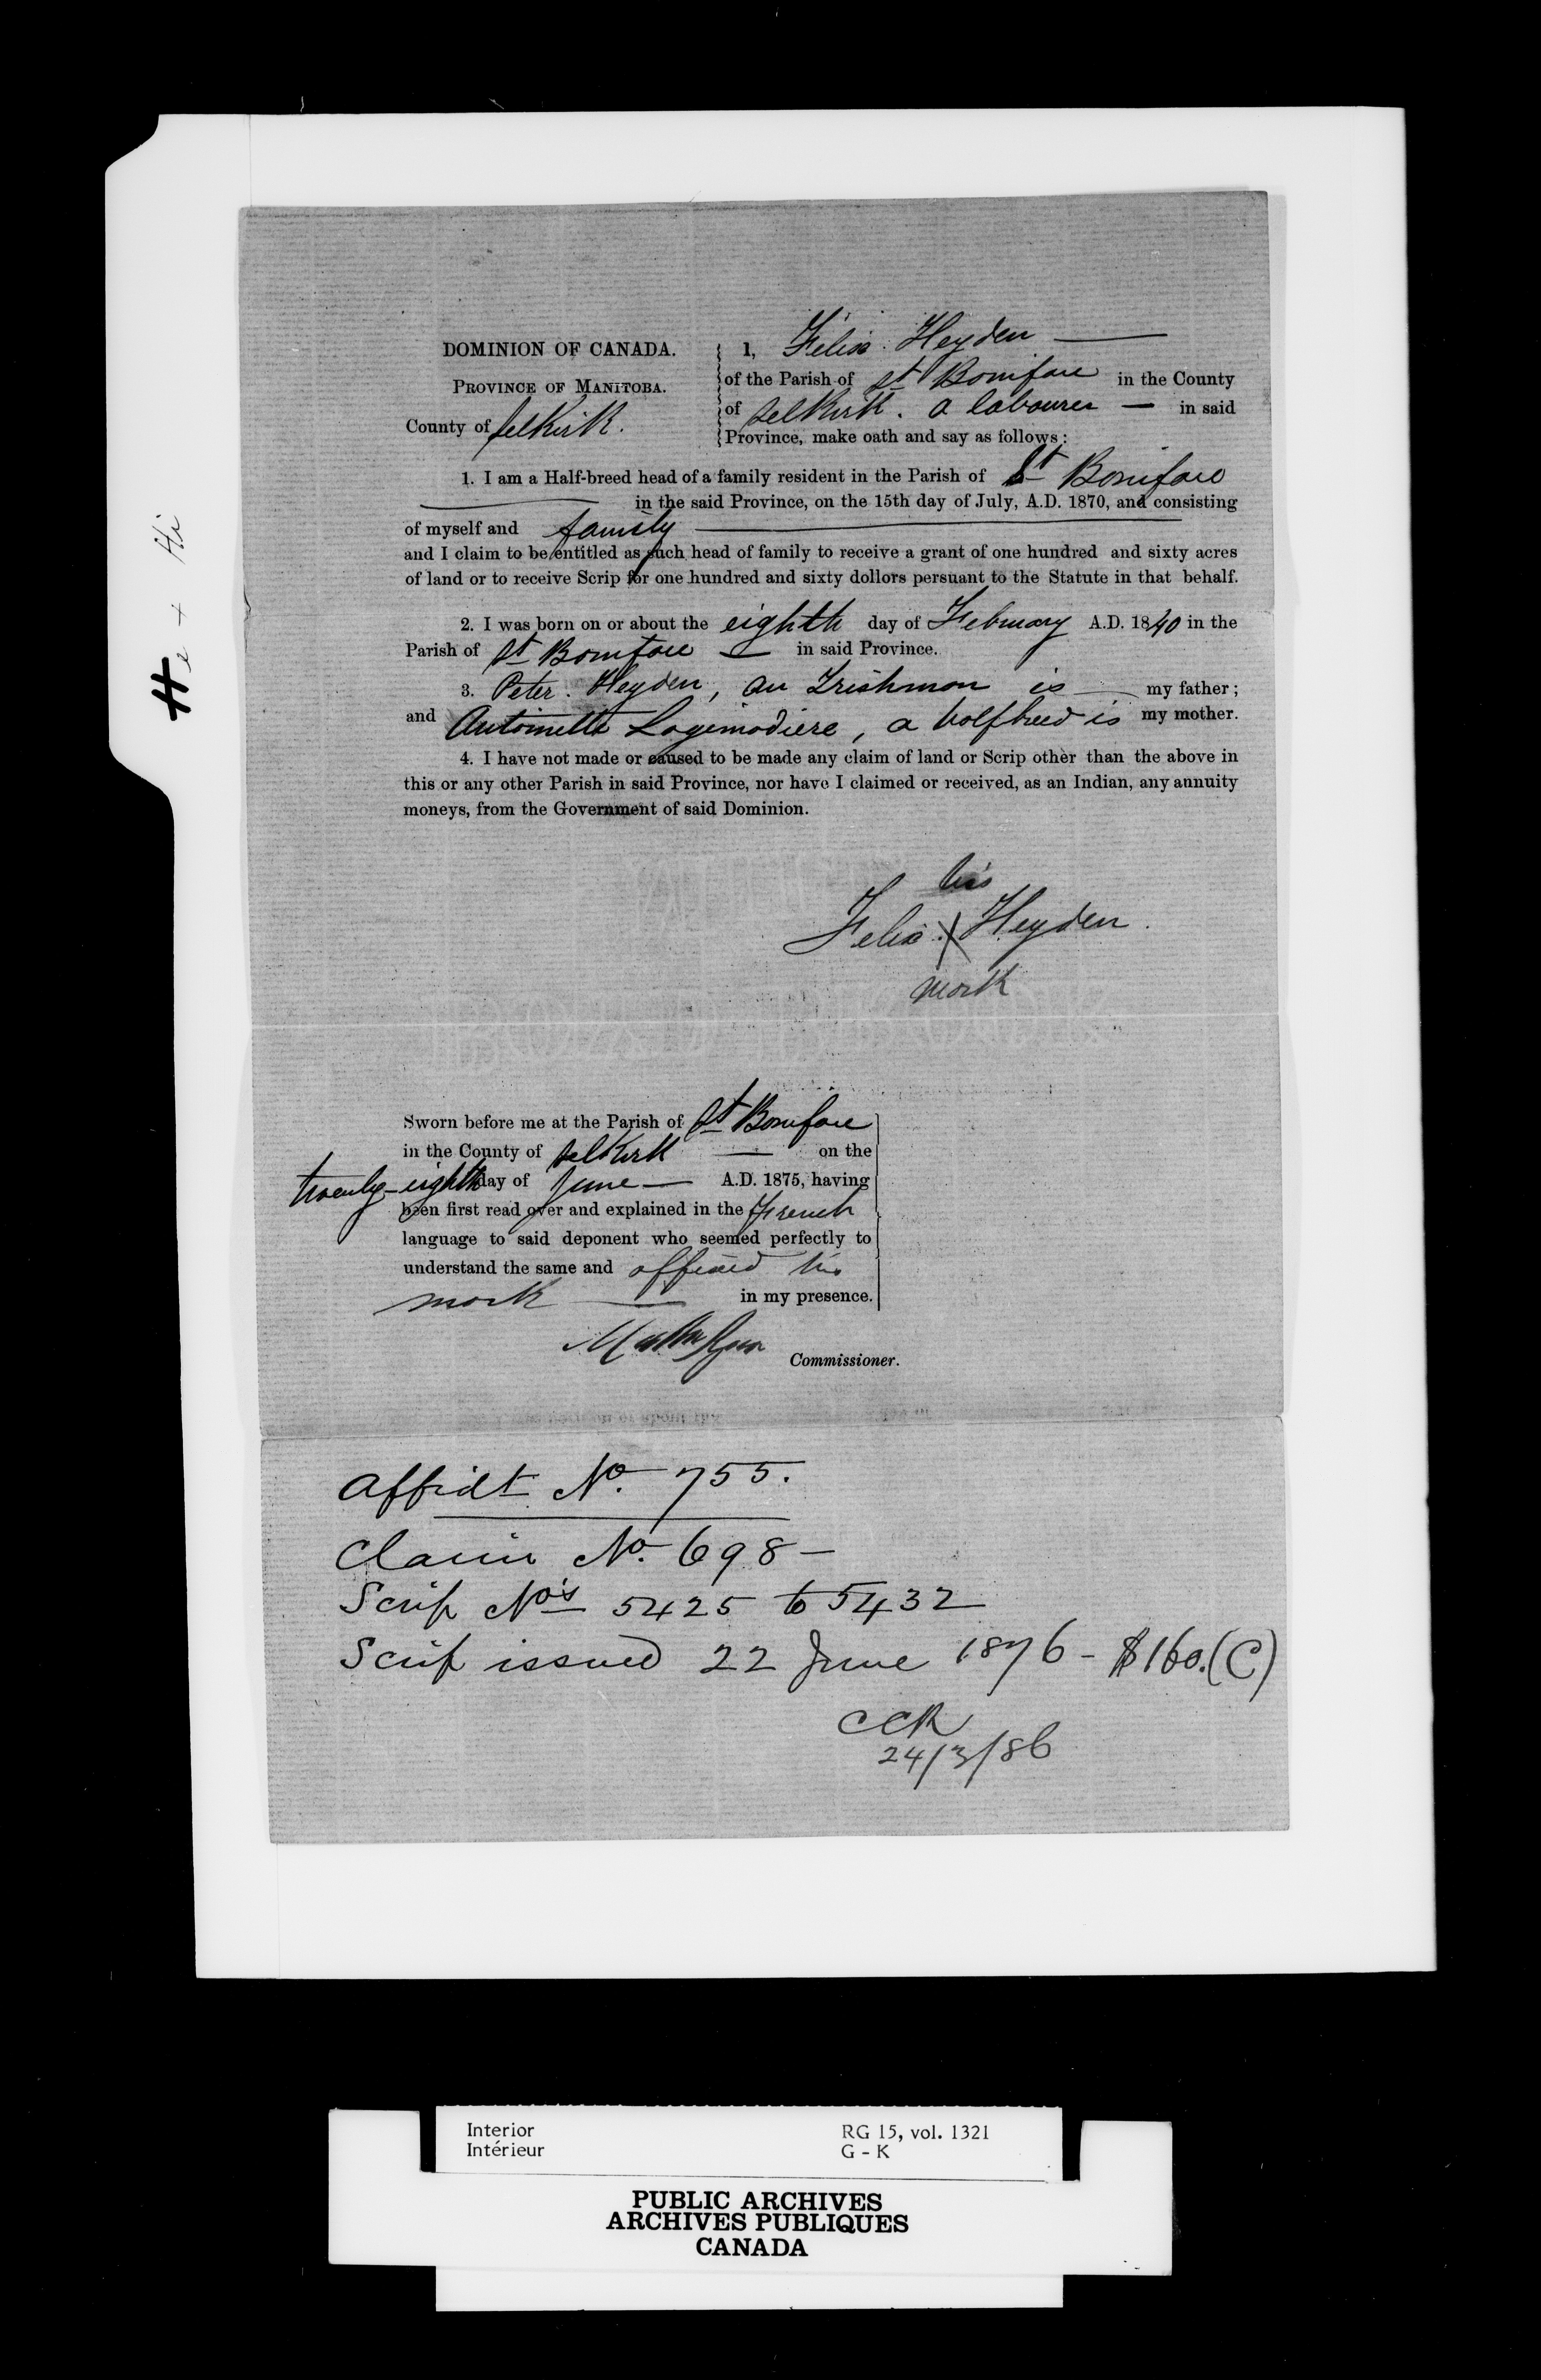 DOMINION OF CANADA.
PROVINCE OF MANITOBA.
County of Selkirk.
1, Felix Heyden
of the Parish of St Boniface in the County
of Selkirk. a labourer — in said
Province, make oath and say as follows:
1. I am a Half-breed head of a family resident in the Parish of St Boniface
in the said Province, on the 15th day of July, A.D. 1870, and consisting
of myself and family
and I claim to be entitled as such head of family to receive a grant of one hundred and sixty acres
of land or to receive Scrip for one hundred and sixty dollors persuant to the Statute in that behalf.
2. I was born on or about the eighth day of February A.D. 1840 in the
Parish of St Boniface — in said Province.
3. Peter Heyden, an Irishman is — my father;
and Antoinette Lagemodiere, a halfbreed is my mother.
4. I have not made or caused to be made any claim of land or Scrip other than the above in
this or any other Parish in said Province, nor have I claimed or received, as an Indian, any annuity
moneys, from the Government of said Dominion.
his
Felix X Heyden.
mark
Sworn before me at the Parish of St Boniface
in the County of Selkirk — on the
twenty-eighth day of June — A.D. 1875, having
been first read over and explained in the French
language to said deponent who seemed perfectly to
understand the same and affixed his
mark — in my presence.
Commissioner.
Affidt No. 755.
Claim No. 698 —
Scrip No's 5425 to 5432
Scrip issued 22 June 1876 - $160.(C)
CCR
24/3/86
He + Hi
Interior
Intérieur
RG 15, vol. 1321
G - K
PUBLIC ARCHIVES
ARCHIVES PUBLIQUES
CANADA